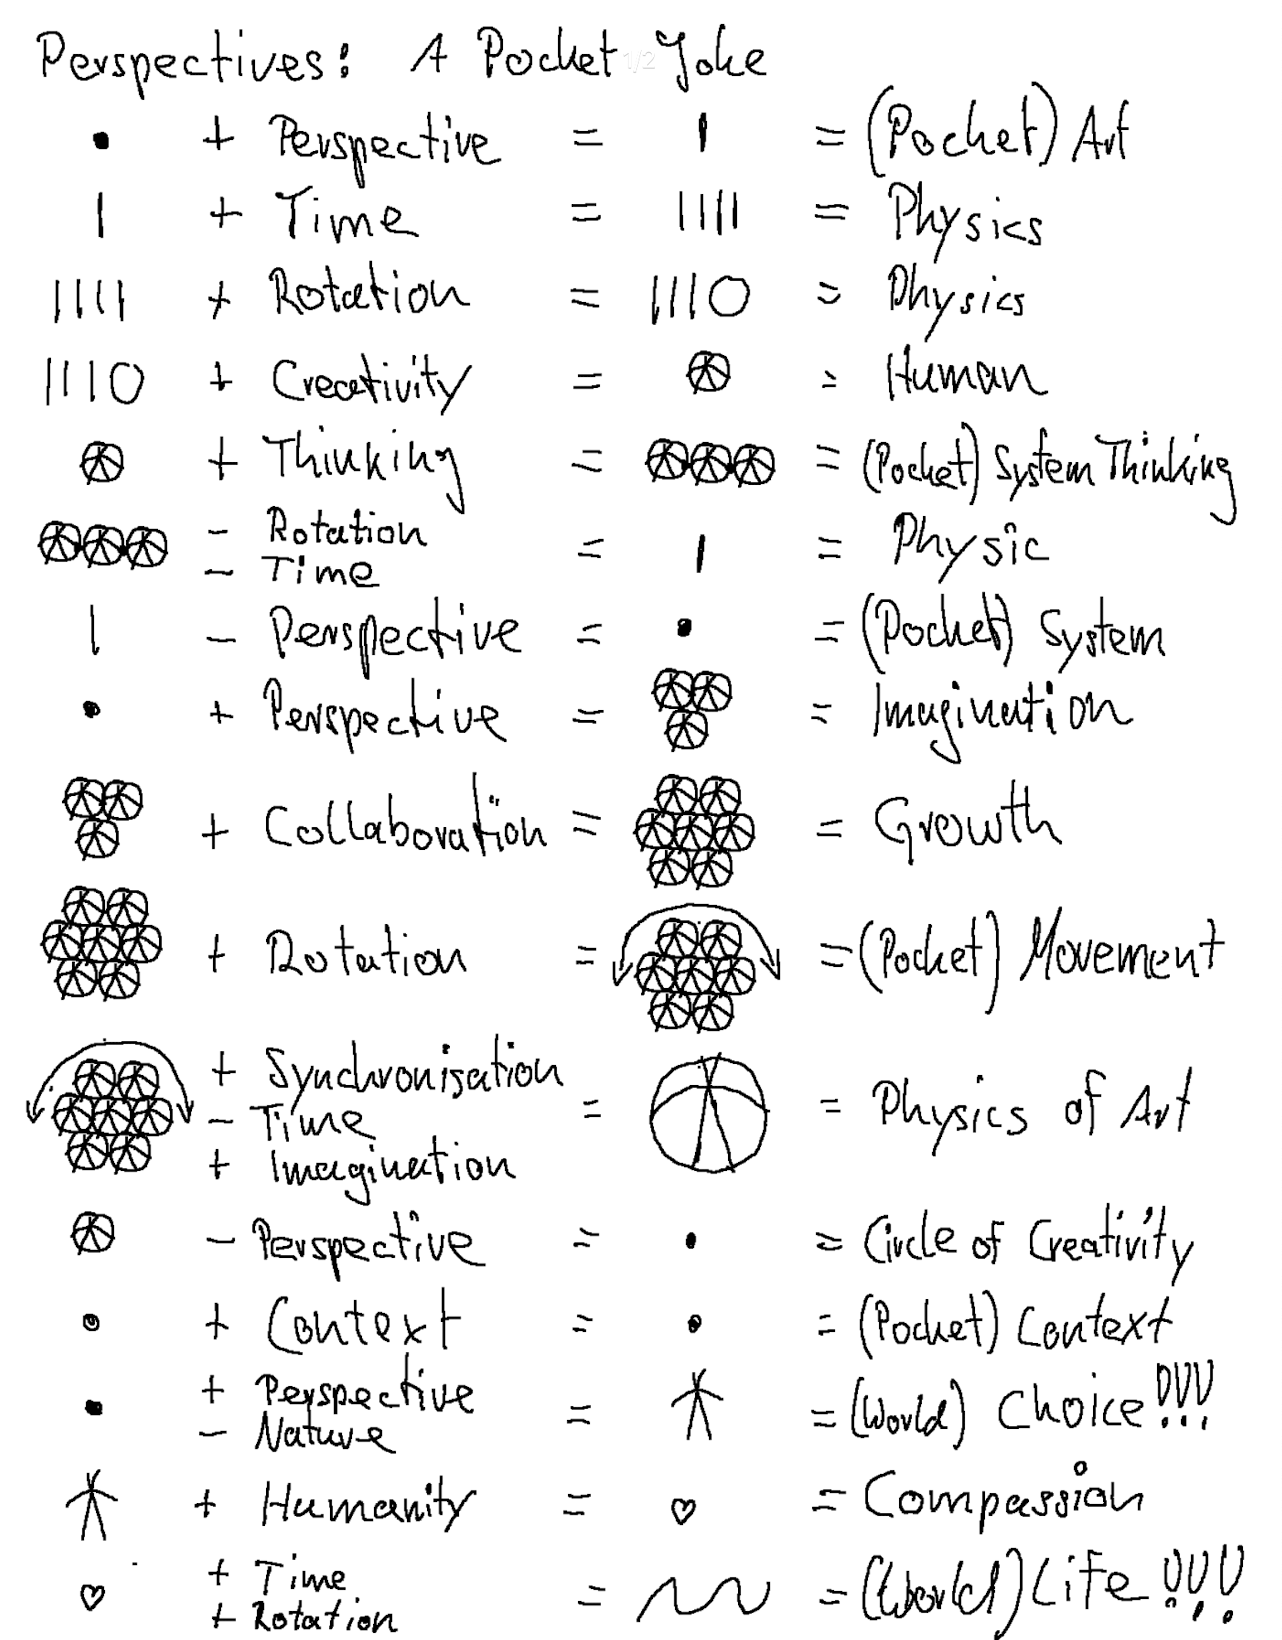 Perspectives: A Pocket Joke
1/2
+ Perspective = = (Pocket) Art
+ Time = = Physics
+ Rotation = = Physics
+ Creativity = = Human
+ Thinking = = (Pocket) System Thinking
- Rotation
- Time = = Physic
- Perspective = = (Pocket) System
+ Perspective = = Imagination
+ Collaboration = = Growth
+ Rotation = = (Pocket) Movement
+ Synchronisation
- Time = = Physics of Art
+ Imagination
- Perspective = = Circle of Creativity
+ Context = = (Pocket) Context
+ Perspective
- Nature = = (World) Choice!!!
+ Humanity = = Compassion
+ Time
+ Rotation = = (World) Life!!!